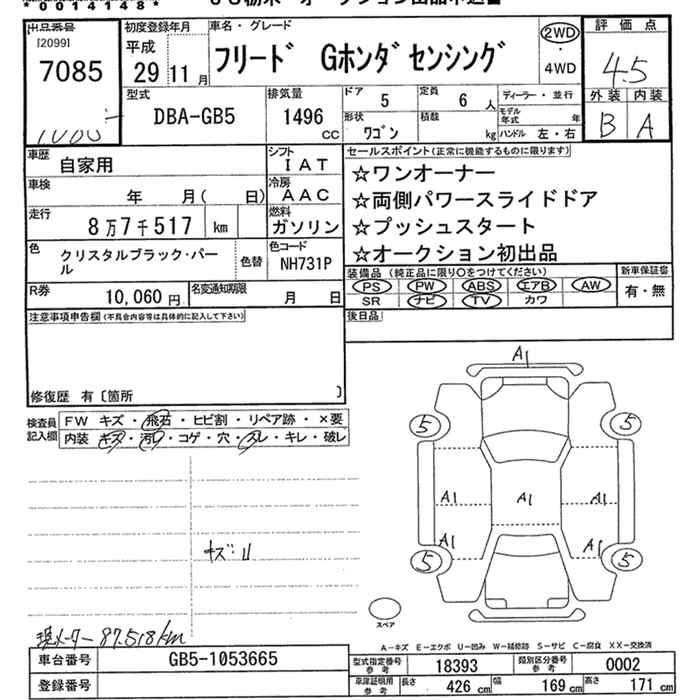 *00141148*
出品番号 初度登録年月 車名・グレード 評価点
[2099]
7085
平成 29 11 月
フリード Gホンダセンシング
2WD
・
4WD
4.5
型式 排気量 ドア 定員 ディーラー・並行 外装 内装
DBA-GB5 1496 cc 5 6 人 モデル年式 年 B A
形状 積載
ワゴン kg ハンドル 左・右
車歴 自家用 シフト IAT
セールスポイント(正常に機能するものに限ります)
☆ワンオーナー
車検 年 月( 日) 冷房 AAC
☆両側パワースライドドア
走行 8万7千517 km 燃料 ガソリン
☆プッシュスタート
色 クリスタルブラック・パール 色替 色コード NH731P
☆オークション初出品
装備品(純正品に限り○をつけてください) 新車保証書
PS PW ABS エアB AW 有・無
SR ナビ TV カワ
R券 10,060 円 名変通知期限 月 日
後日品
注意事項申告欄(不具合内容等は具体的に記入して下さい)
修復歴 有〔箇所 〕
検査員記入欄
FW キズ・飛石・ヒビ割・リペア跡・×要
内装 キズ・汚レ・コゲ・穴・スレ・キレ・破レ
A1
5 5
A1 A1 A1
A1 A1
5 5
キズU
スペア
現メーター 87,518km
A-キズ E-エクボ U-凹み W-補修跡 S-サビ C-腐食 XX-交換済
車台番号 GB5-1053665
型式指定番号参考 18393 類別区分番号参考 0002
登録番号
車庫証明用参考 長さ 426 cm 幅 169 cm 高さ 171 cm